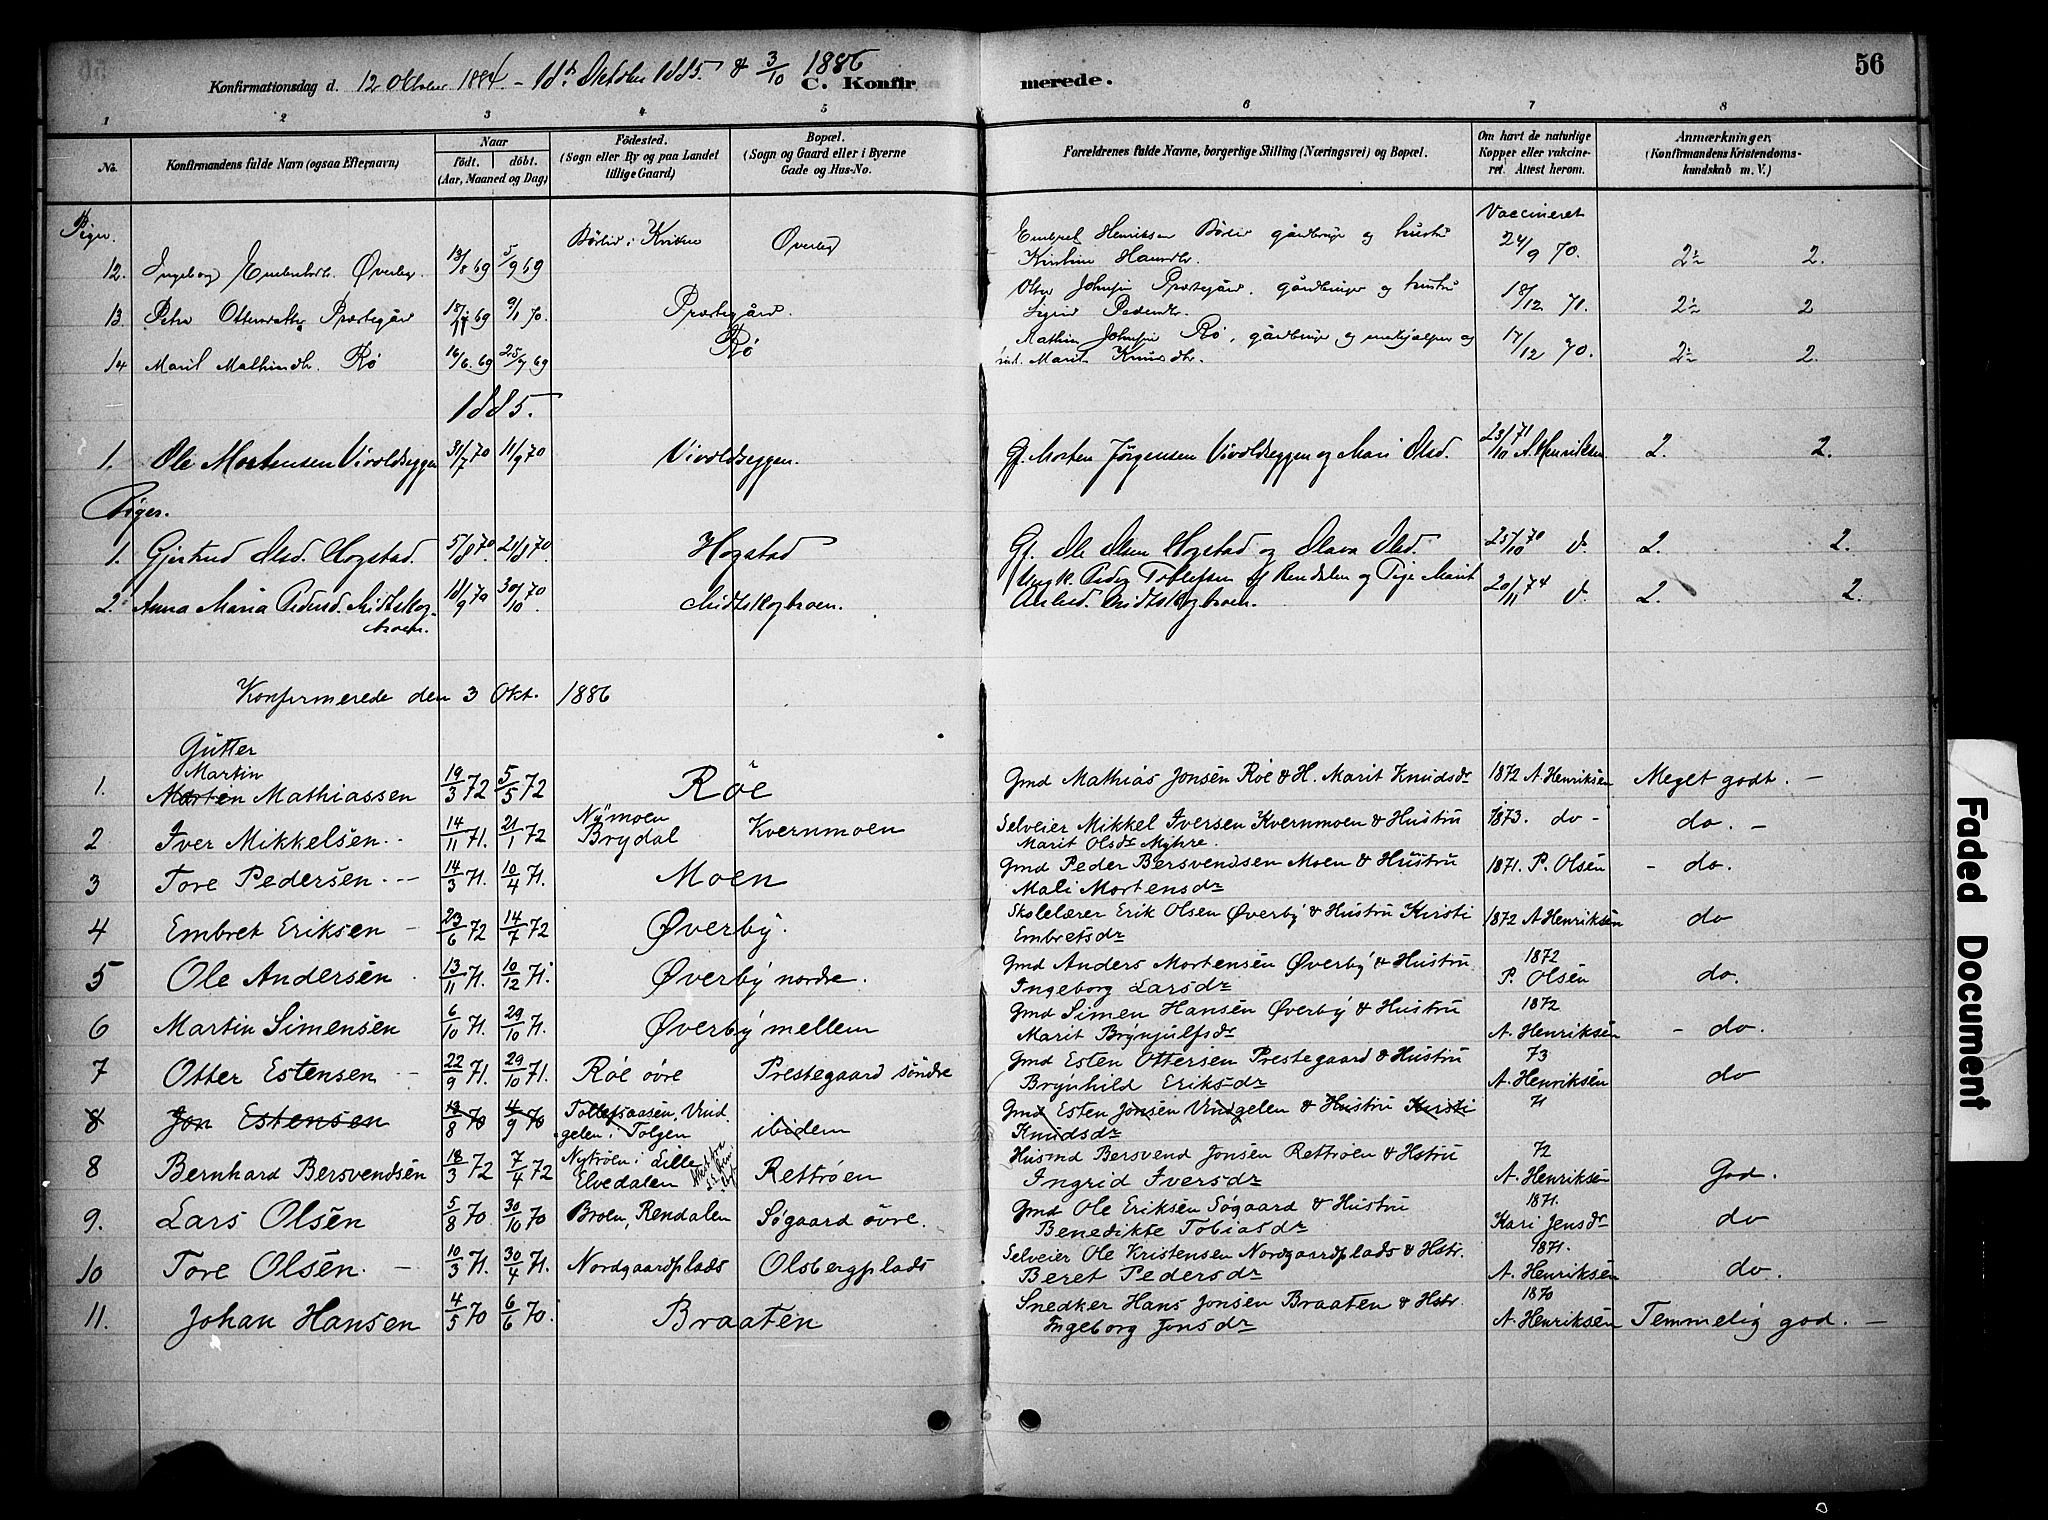 56
Konfirmationsdag d. 12 Oktober 1884 - 1ste Oktober 1885. & 3/10 1886
C. Konfirmerede.
1 2 3 4 5 6 7 8
No.
Konfirmandens fulde Navn (ogsaa Efternavn)
Naar
födt. döbt.
(Aar, Maaned og Dag)
Födested.
(Sogn eller By og paa Landet
tillige Gaard)
Bopæl.
(Sogn og Gaard eller i Byerne
Gade og Hus-No.
Forældrenes fulde Navne, borgerlige Stilling (Næringsvei) og Bopæl.
Om havt de naturlige
Kopper eller vakcine-
ret. Attest herom.
Anmærkninger,
(Konfirmandens Kristendoms-
kundskab m. V.)
Piger.
Vaccineret
12. Ingeborg Embretsdr. Øverby. 13/8 69 5/9 69 Øverby Embret Henriksen gårdbruger og hustru
Kirstine Hansdr. 24/9 70. 2 2.
13. Petra Ottersdatter Præstegård 69 9/1 70. Præstegård. Otter Johnsen Præstegård, gårdbruger og hustru
Sigrid Pedersdr. 18/12 71. 2 2
14 Marit Mathiasdr. Rö 16/6 69 25/7 69 Rö Mathias Johnsen Rö, gårdbruger og
Marit Knudsdr. 17/12 70. 2 2.
1885.
1. Ole Mortensen Vivoldseggen 31/7 70 11/9 70 Vivoldseggen. Gf. Morten Jørgensen Vivoldseggen og Mari Olsd. 23/10 71 A. Henriksen 2. 2.
Piger.
1. Gjertrud Olsd. Hogstad. 5/8 70 21/8 70 Hogstad Gf. Ole Olsen Hogstad og Olava Olsd. 25/10 70 d. 2. 2.
2. Anna Maria Pedersd. Midtskog-
broen. 11/9 70 30/10 70 Midtskogbroen. Ungk. Peder Tollefsen af Rendalen og Pige Marit
Midtskogbroen. 20/11 74 d. 2. 2.
Konfirmerede den 3 Okt. 1886
Gutter
1. Martin
Mathiassen 19/3 72 5/5 72 Röe Gmd Mathias Jonsen Röe & H. Marit Knudsdr 1872 A. Henriksen Meget godt. -
2 Iver Mikkelsen 14/11 71. 21/1 72 Nymoen
Brydal Kvernmoen Selveier Mikkel Iversen Kvernmoen & Hustru
Marit Olsdr Myhre. 1873. do - do. -
3 Tore Pedersen 14/3 71. 10/4 71. Moen Gmd Peder Bersvendsen Moen & Hustru
Mali Mortensdr 1871. P. Olsen - do.
4 Embret Eriksen 23/6 72 14/7 72 Øverby. Skolelærer Erik Olsen Øverby & Hustru Kirsti
Embretsdr 1872 A. Henriksen do
5 Ole Andersen 13/11 71. 10/12 71. Øverby nordre. Gmd Anders Mortensen Øverby & Hustru
Ingeborg Larsdr 1872
P. Olsen do.
6 Martin Simensen 6/10 71. 29/10 71. Øverby mellem Gmd Simen Hansen Øverby & Hustru
Marit Brynjulfsdr 1872
A. Henriksen - do.
7 Otter Estensen 22/9 71. 29/10 71. Röe övre Prestegaard söndre Gmd Esten Ottersen Prestegaard & Hustru
Brynhild Eriksdr 73
A. Henriksen do
8 Jon Estensen 13/8 70 4/9 70 Tollefsaasen, Vind-
gelen i Tolgen ibidem Gmd Esten Jonsen Vindgelen & Hustru Kirsti
Knudsdr 71
8 Bernhard Bersvendsen 18/3 72 7/4 72 Nytröen i Lille
Elvedalen Rettröen Husmd Bersvend Jonsen Rettröen & Hstru
Ingrid Iversdr 72
A. Henriksen God.
9. Lars Olsen 5/8 70 30/10 70 Broen, Rendalen Søgaard övre. Gmd Ole Eriksen Søgaard & Hustru
Benedikte Tobiasdr 1871.
Kari Jensdr do
10 Tore Olsen. 10/3 71. 30/4 71. Nordgaardplads Olsbergplads Selveier Ole Kristensen Nordgaardplads & Hstr.
Beret Pedersdr 1871.
A. Henriksen do.
11. Johan Hansen 4/5 70 6/6 70. Braaten Snedker Hans Jonsen Braaten & Hstr.
Ingeborg Jonsdr 1870
A. Henriksen Temmelig god. -
Faded Document